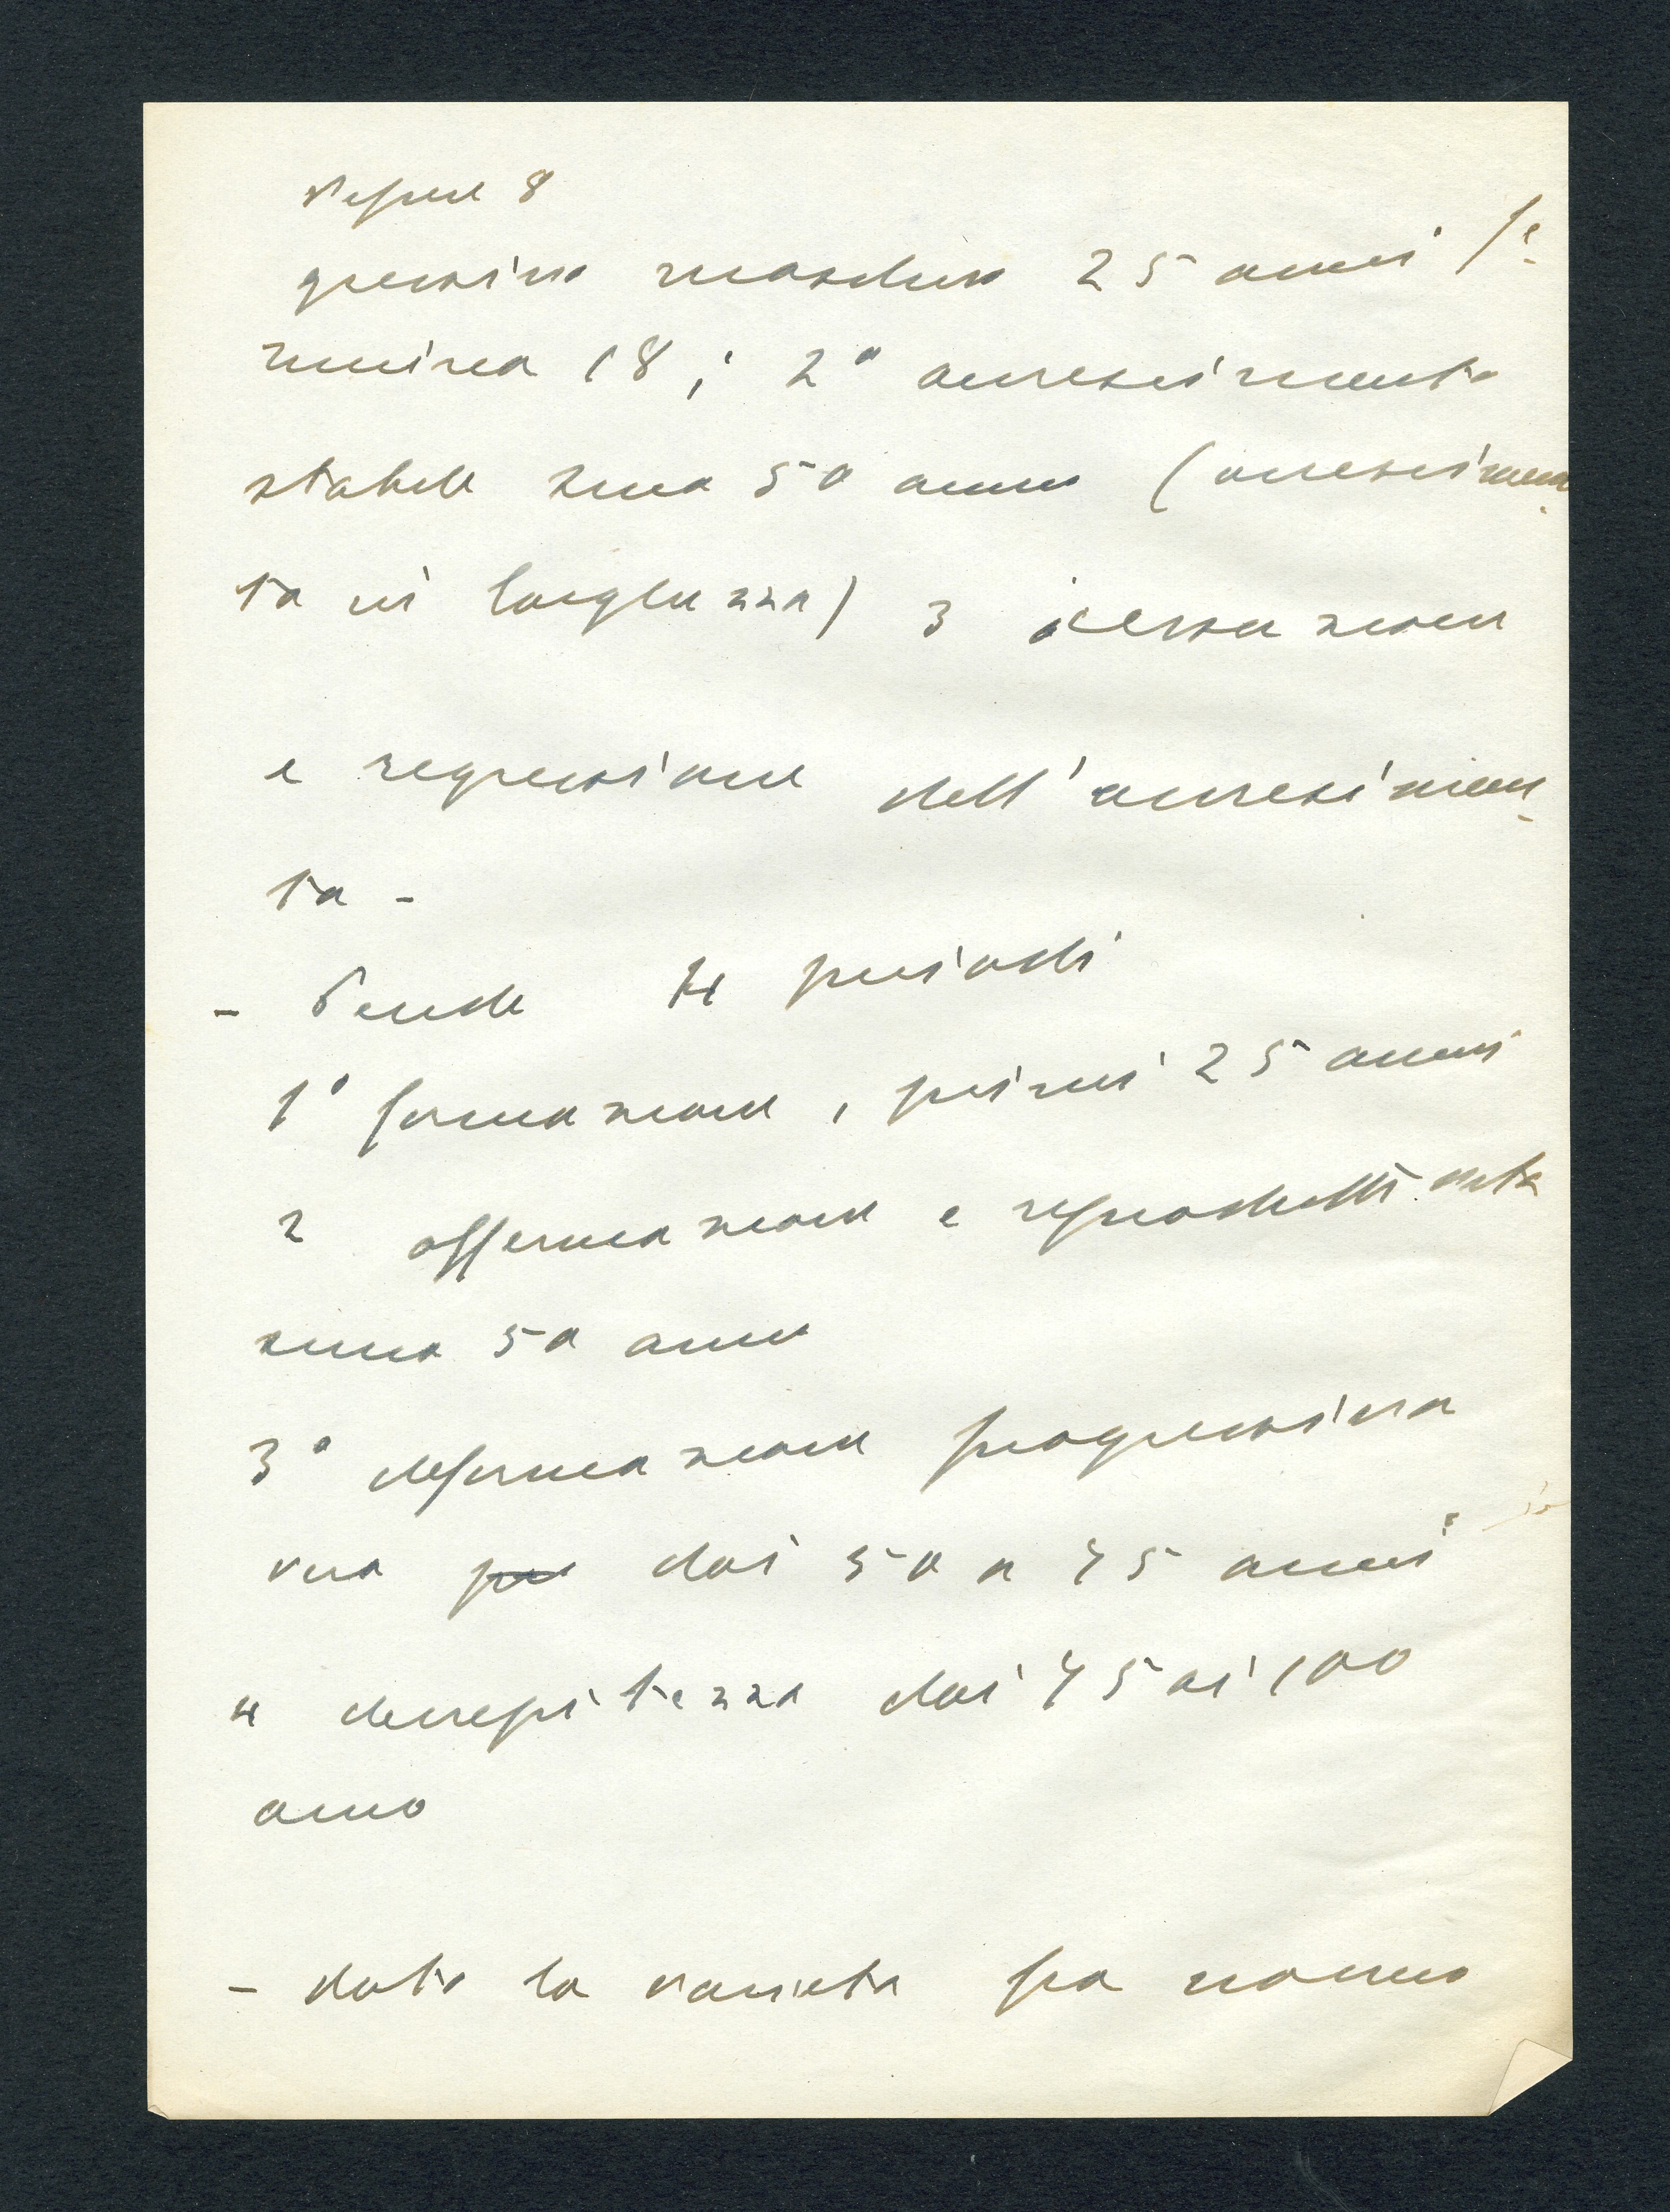 8
gressivo maschio 25 anni fe-
mmina 18; 2° accrescimento
stabile sino 50 anno (accrescimen-
to in larghezza) 3 cessazione
e regressione dell'accrescimen-
to -
- Pende 4 periodi
1° formazione, primi 25 anni
2 affermazione e reproduttività
sino 50 anno
3° deformazione progressiva
dai 50 a 75 anni
4 decrepitezza dai 75 ai 100
anno
- data la varietà fra uomo